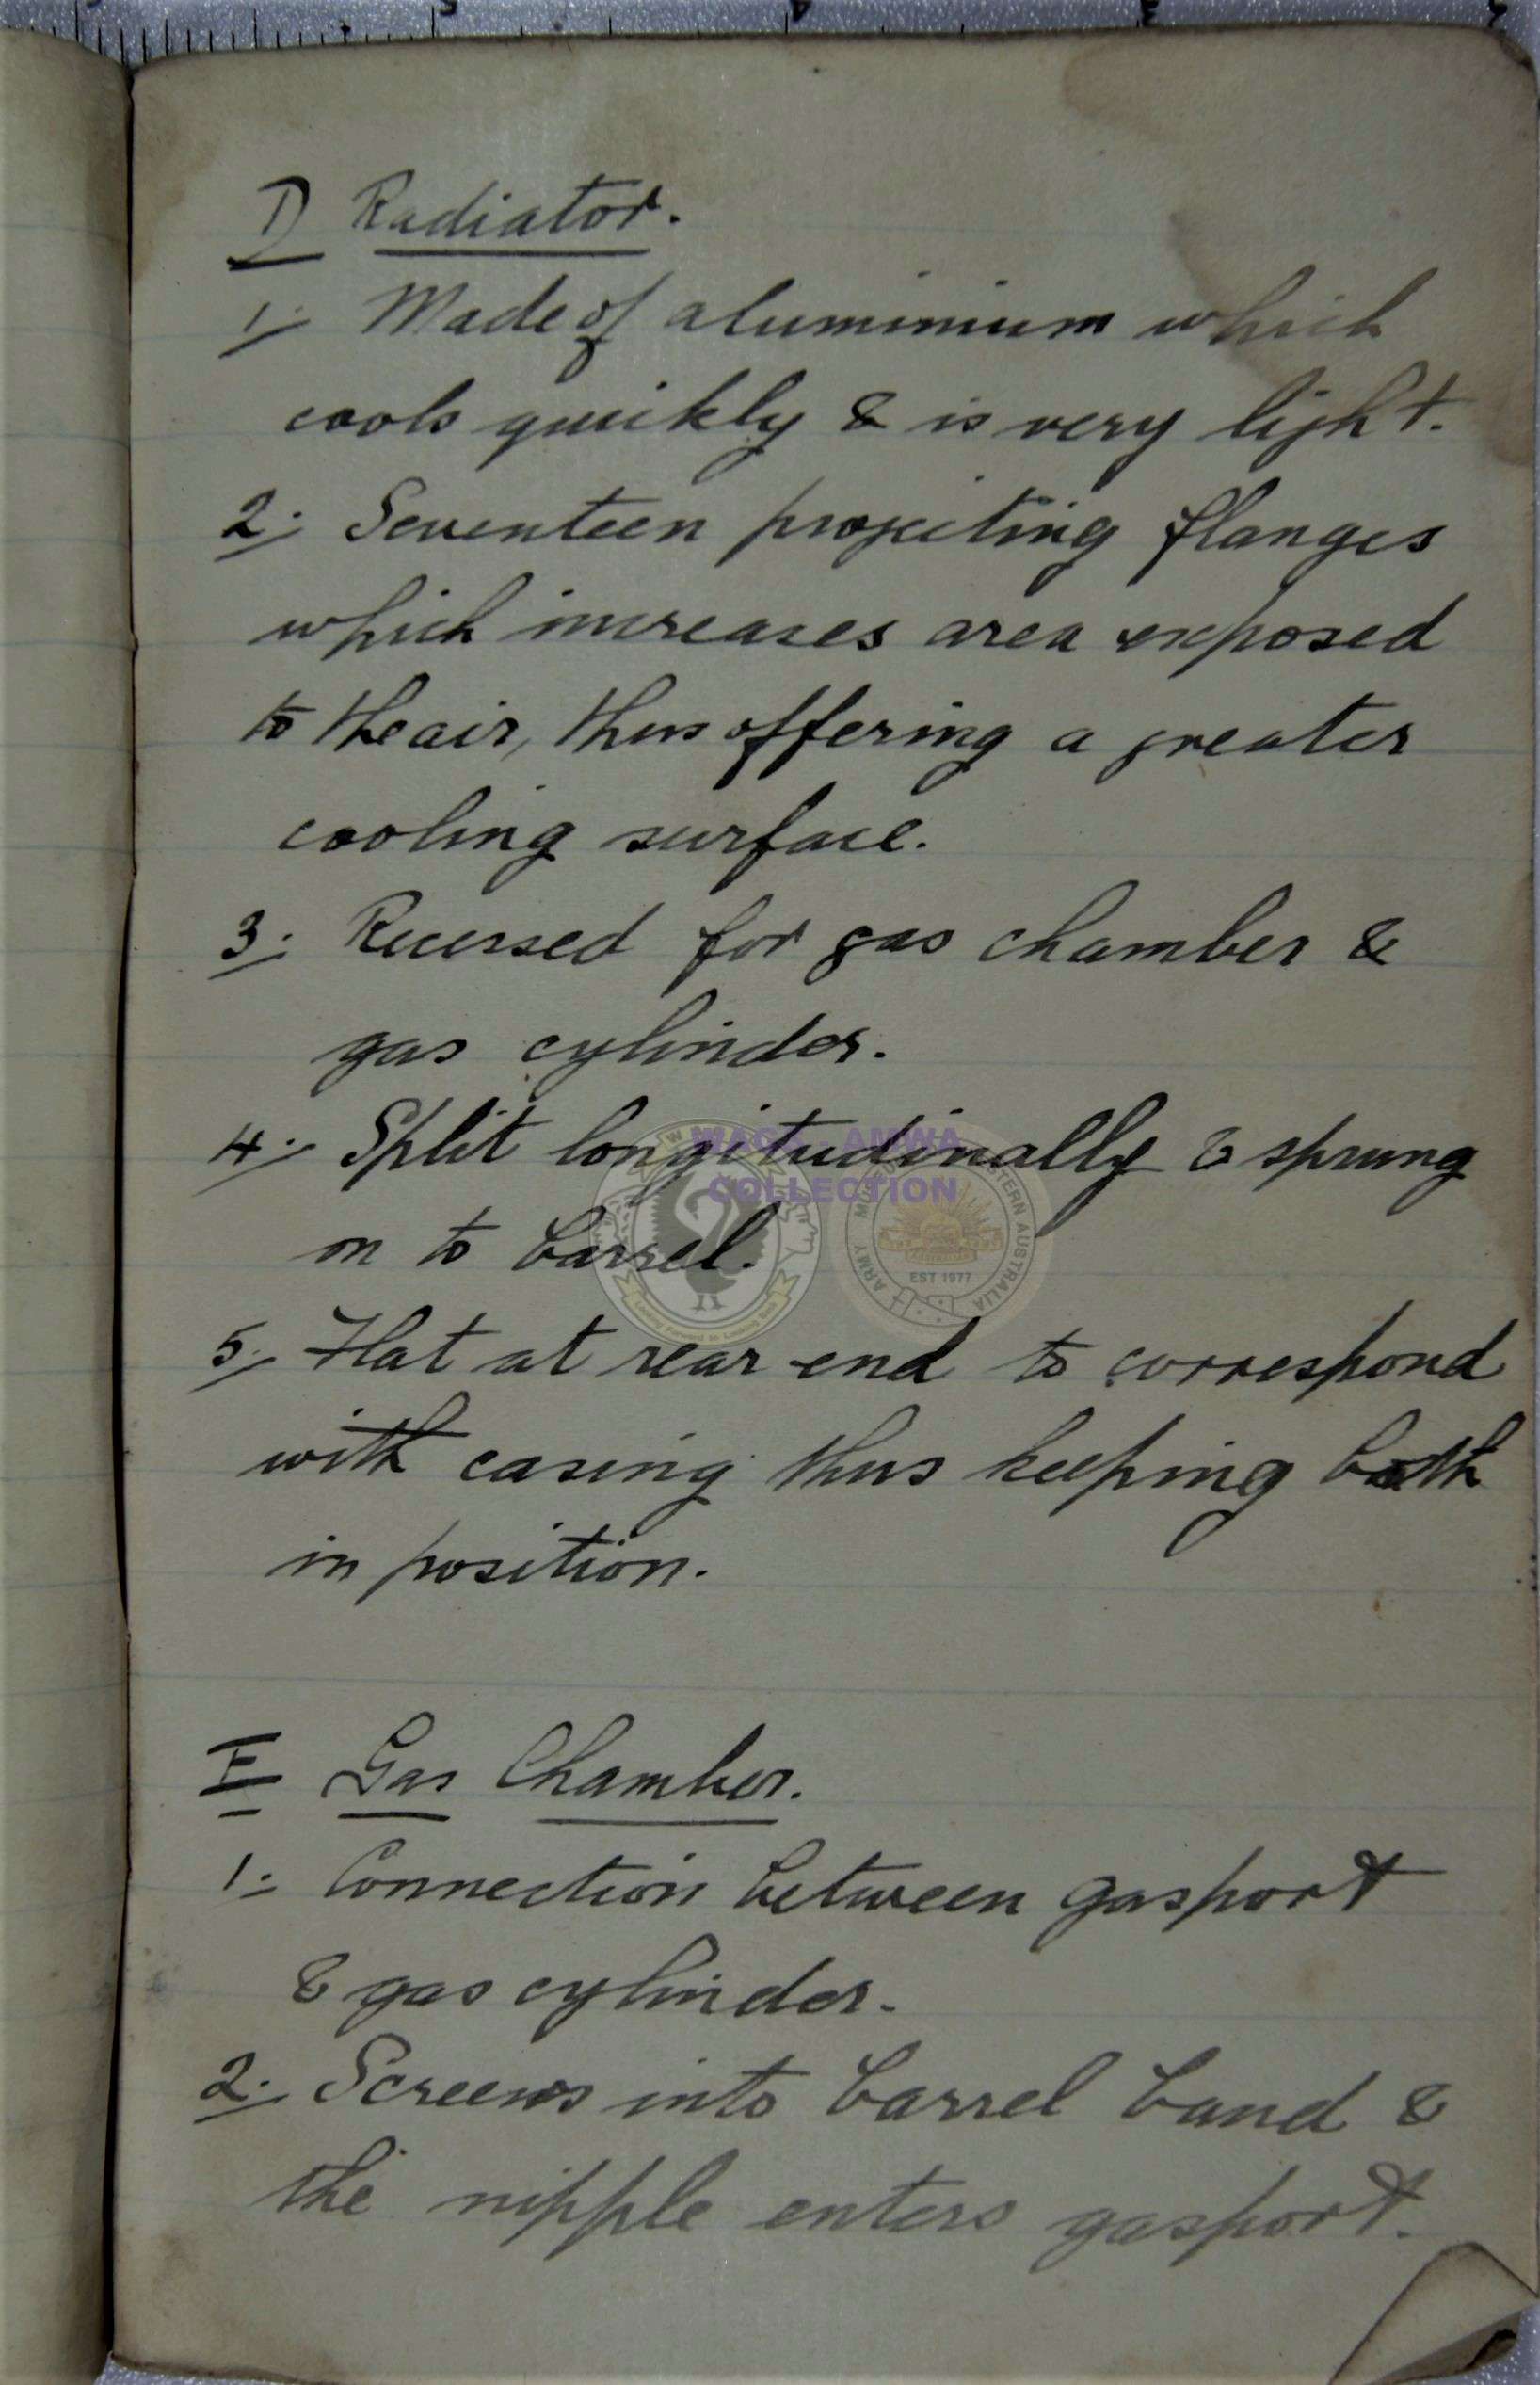 D Radiator.
1. Made of aluminium which
cools quickly & is very light.
2. Seventeen projecting flanges
which increases area exposed
to the air, thus offering a greater
cooling surface.
3. Recessed for gas chamber &
gas cylinder.
4. Split longitudinally & sprung
on to barrel.
5. Flat at rear end to correspond
with casing thus keeping both
in position.
E Gas Chamber.
1. Connection between gasport
& gas cylinder.
2. Screws into barrel band &
the nipple enters gasport.
MAGS - AMWA
COLLECTION
EST 1977
ARMY MUSEUM WESTERN AUSTRALIA